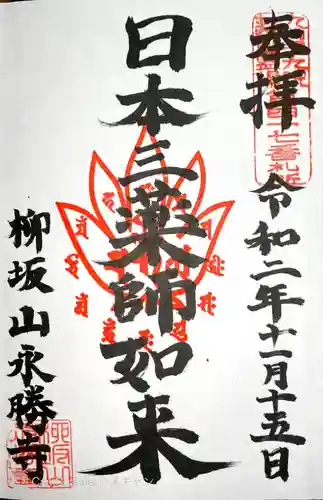 奉拝
令和二年十一月十五日
日本三薬師如来
柳坂山永勝寺